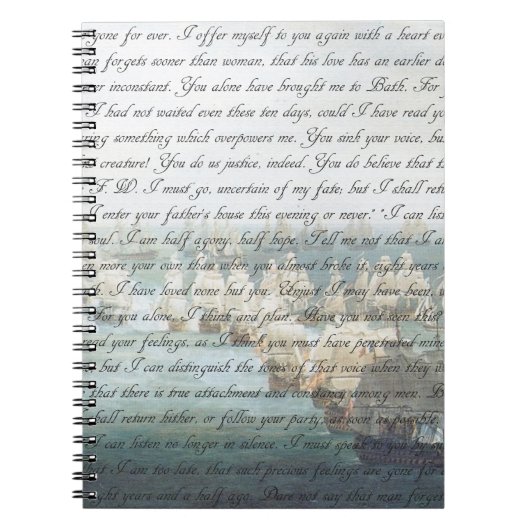 gone for ever. I offer myself to you again with a heart ev
an forgets sooner than woman, that his love has an earlier d
er inconstant. You alone have brought me to Bath. For
I had not waited even these ten days, could I have read yo
ring something which overpowers me. You sink your voice, but
s creature! You do us justice, indeed. You do believe that th
F. W. I must go, uncertain of my fate; but I shall retu
I enter your father's house this evening or never." "I can list
soul. I am half agony, half hope. Tell me not that I a
n more your own than when you almost broke it, eight years
h. I have loved none but you. Unjust I may have been, w
For you alone, I think and plan. Have you not seen this?
read your feelings, as I think you must have penetrated mine
but I can distinguish the tones of that voice when they w
e that there is true attachment and constancy among men. B
hall return hither, or follow your party, as soon as possible.
I can listen no longer in silence. I must speak to you by su
that I am too late, that such precious feelings are gone for e
ght years and a half ago. Dare not say that man forget